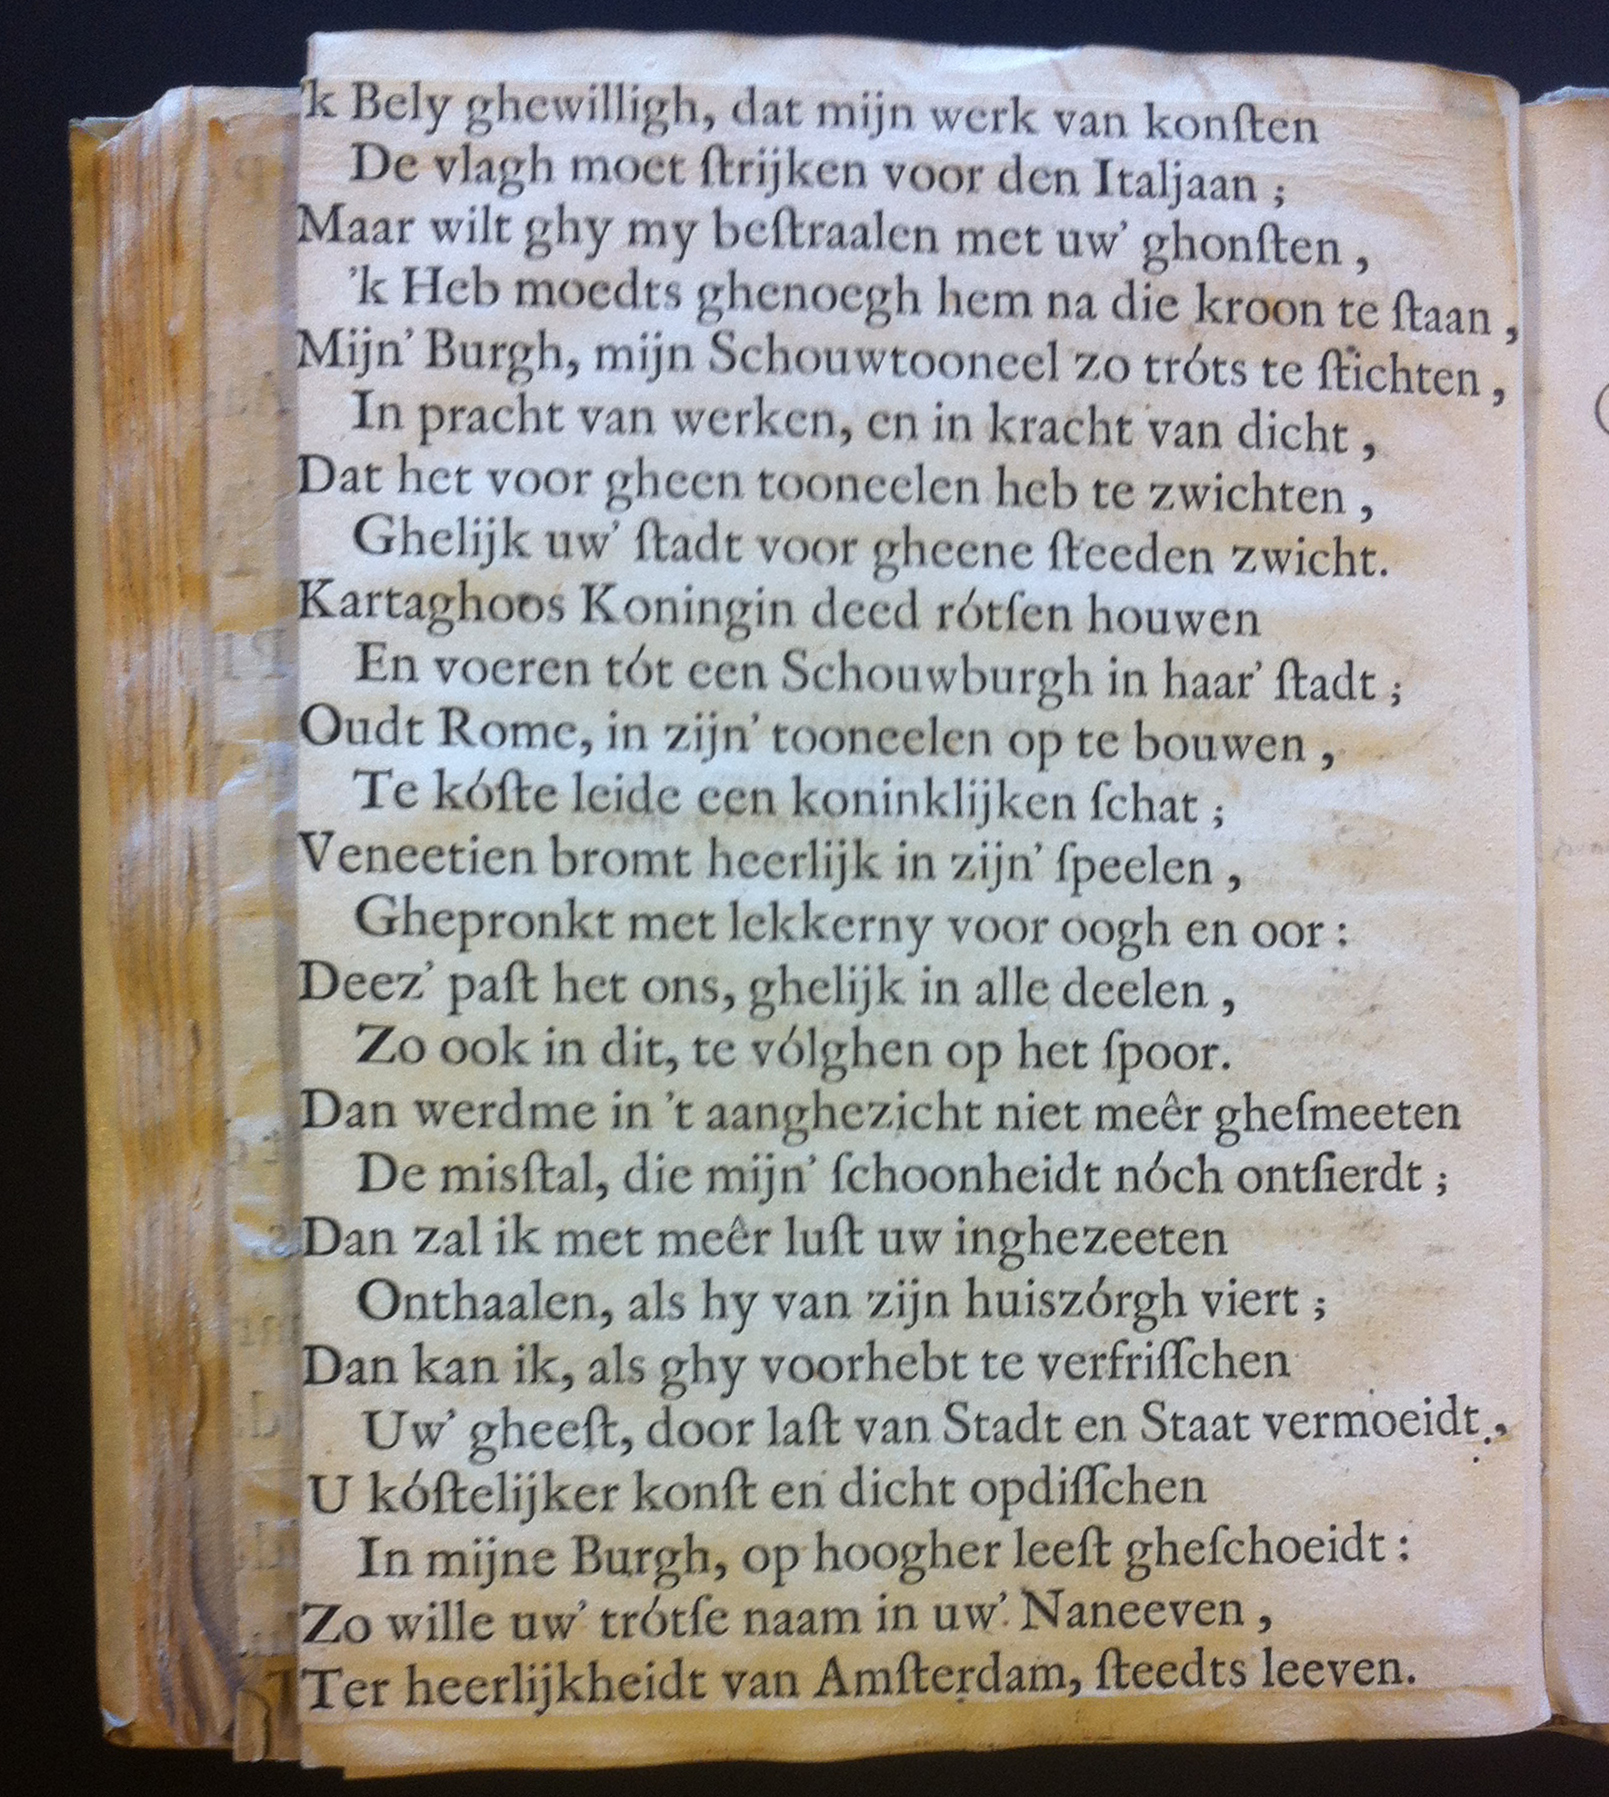 'k Bely ghewilligh, dat mijn werk van konſten
De vlagh moet ſtrijken voor den Italjaan ;
Maar wilt ghy my beſtraalen met uw' ghonſten ,
'k Heb moedts ghenoegh hem na die kroon te ſtaan ,
Mijn' Burgh, mijn Schouwtooneel zo tróts te ſtichten ,
In pracht van werken, en in kracht van dicht ,
Dat het voor gheen tooneelen heb te zwichten ,
Ghelijk uw' ſtadt voor gheene ſteeden zwicht.
Kartaghoos Koningin deed rótſen houwen
En voeren tót een Schouwburgh in haar' ſtadt ;
Oudt Rome, in zijn' tooneelen op te bouwen ,
Te kóſte leide een koninklijken ſchat ;
Veneetien bromt heerlijk in zijn' ſpeelen ,
Ghepronkt met lekkerny voor oogh en oor :
Deez' paſt het ons, ghelijk in alle deelen ,
Zo ook in dit, te vólghen op het ſpoor.
Dan werdme in 't aanghezicht niet meêr gheſmeeten
De misſtal, die mijn' ſchoonheidt nóch ontſierdt ;
Dan zal ik met meêr luſt uw inghezeeten
Onthaalen, als hy van zijn huiszórgh viert ;
Dan kan ik, als ghy voorhebt te verfriſſchen
Uw' gheeſt, door laſt van Stadt en Staat vermoeidt ,
U kóſtelijker konſt en dicht opdiſſchen
In mijne Burgh, op hoogher leeſt gheſchoeidt :
Zo wille uw' trótſe naam in uw' Naneeven ,
Ter heerlijkheidt van Amſterdam, ſteedts leeven.